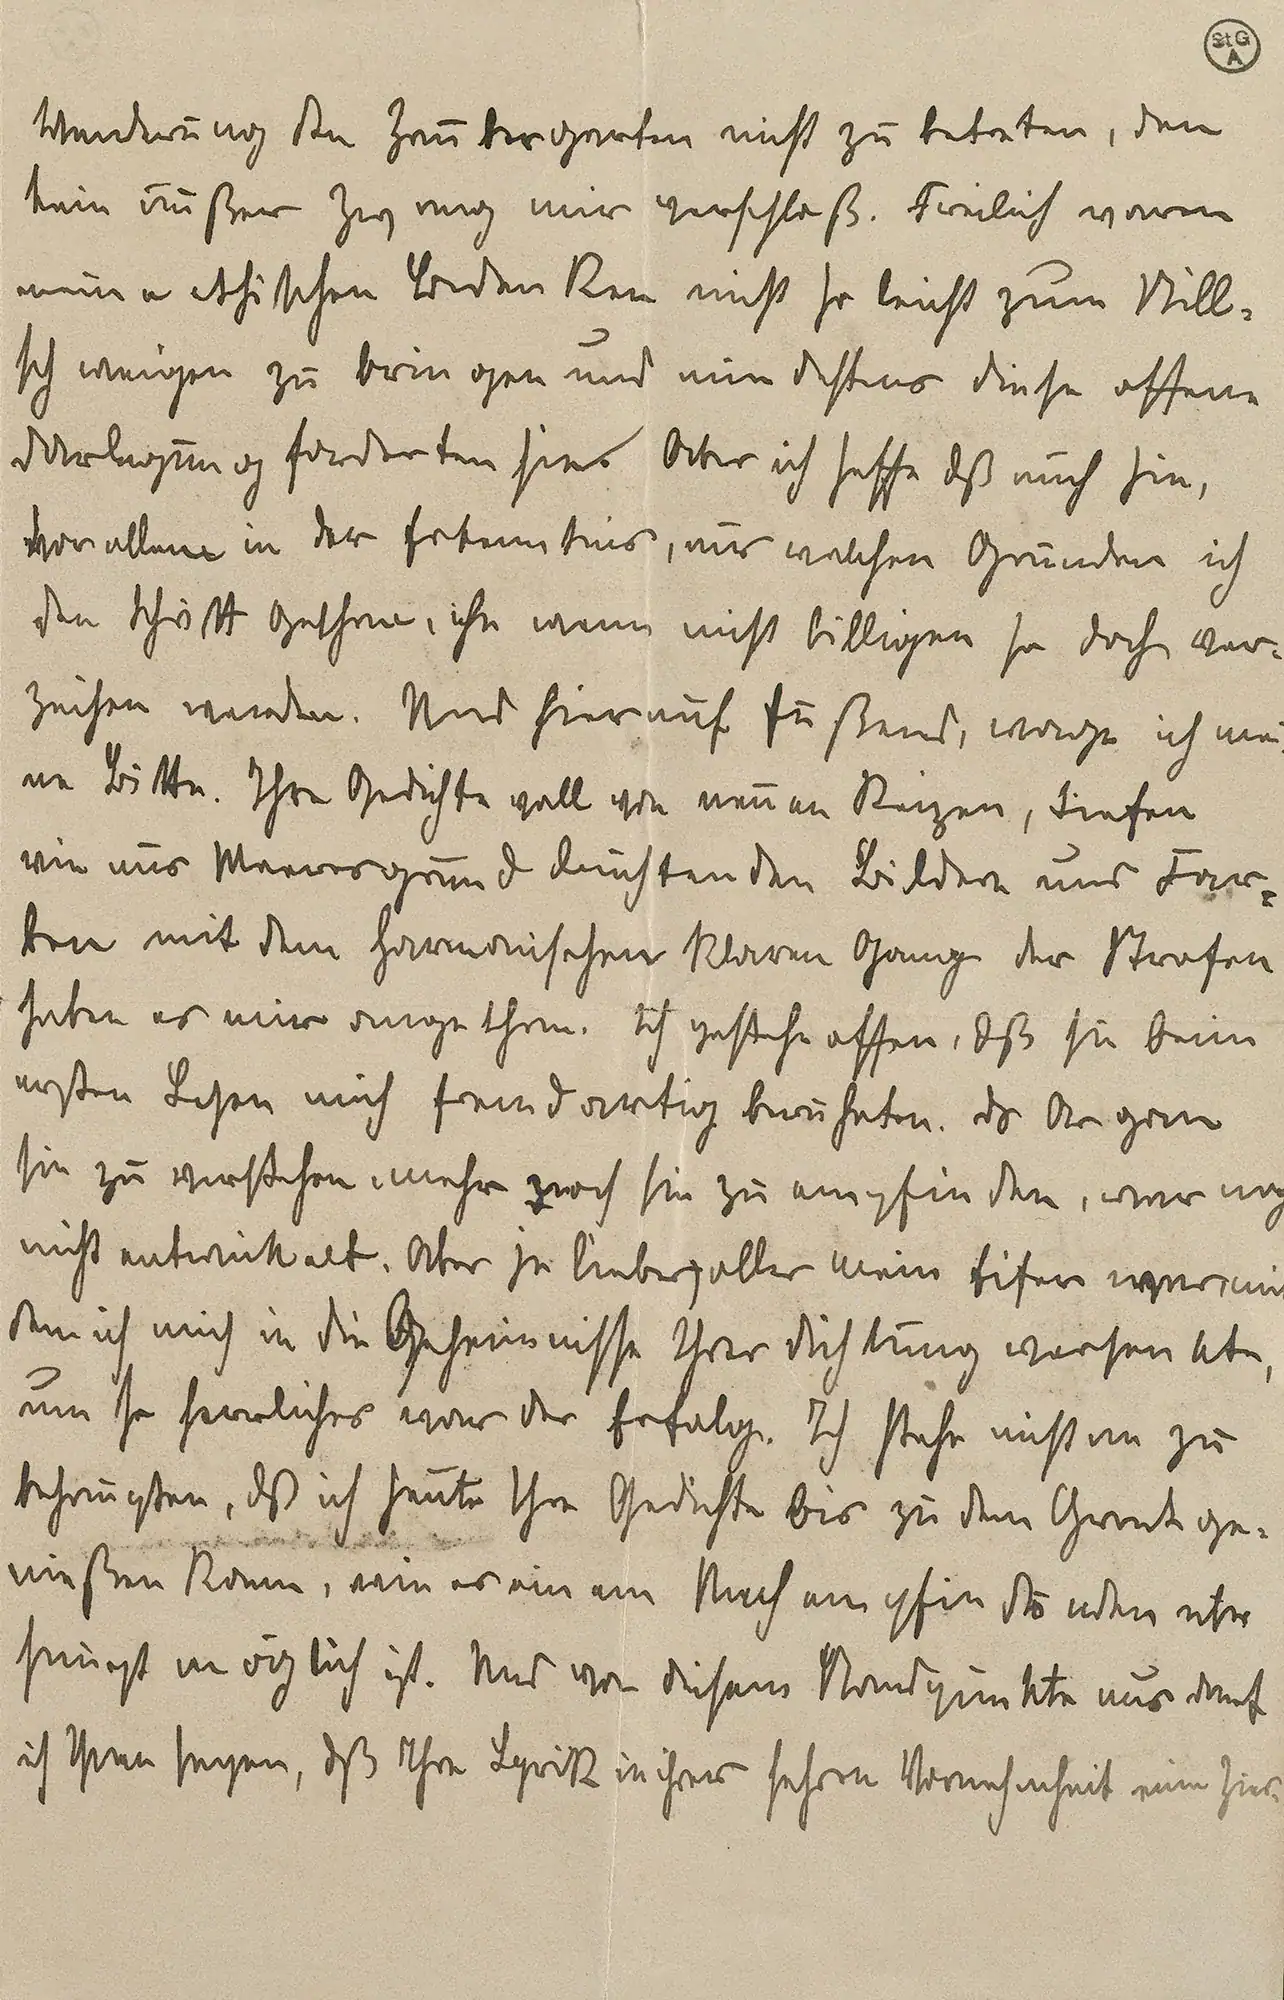 StG
A
Wanderung den Zaubergarten nicht zu betreten, den
kein äußer Zwang mir verschloß. Freilich waren
meine ethischen Bedenken nicht so leicht zum Still-
schweigen zu bringen und mindestens diese offene
Darlegung forderten sie. Aber ich hoffe dß auch Sie,
vor allem in der Erkenntnis, aus welchen Gründen ich
den Schritt gethan, ihn wenn nicht billigen so doch ver-
zeihen werden. Und hierauf fußend, wage ich mei
ne Bitte. Ihre Gedichte voll von neuen Reizen, tiefen
wie aus Meeresgrund leuchtenden Bildern und Far-
ben mit dem harmonischen klaren Gang der Strofen
haben es mir angethan. Ich gestehe offen, dß sie beim
ersten Lesen mich fremdartig berührten. ds Organ
sie zu verstehen, mehr noch sie zu empfinden, war noch
nicht entwickelt. Aber je liebevoller mein Eifer war, mit
dem ich mich in die Geheimnisse Ihrer Dichtung versenkte,
um so herrlicher war der Erfolg. Ich stehe nicht an zu
behaupten, dß ich heute Ihre Gedichte bis zu dem Grade ge-
nießen kann, wie es einem Nachempfindenden über
haupt möglich ist. Und von diesem Standpunkte aus darf
ich Ihnen sagen, dß Ihre Lyrik in ihrer hehren Vornehmheit eine Zier-